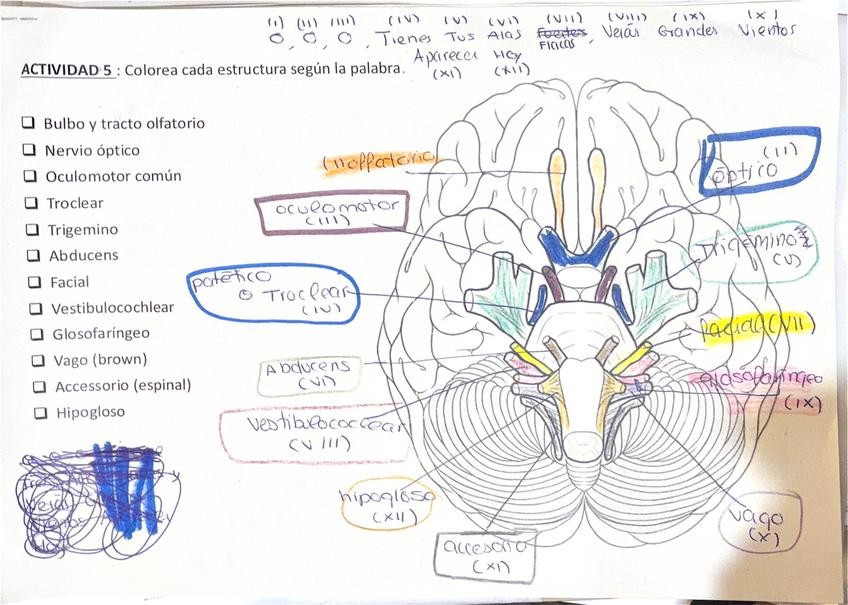 (I) (II) (III) (IV) (V) (VI) (VII) (VIII) (IX) (X)
O, O, O, Tienes Tus Alas Fuertes, Verás Grandes Vientos
Físicas
Aparecer Hoy
(XI) (XII)
ACTIVIDAD 5 : Colorea cada estructura según la palabra.
Bulbo y tracto olfatorio
Nervio óptico
Oculomotor común
Troclear
Trigemino
Abducens
Facial
Vestibulocochlear
Glosofaríngeo
Vago (brown)
Accessorio (espinal)
Hipogloso
(I) olfatorio
(II)
óptico
oculomotor
(III)
Trigémino
(V)
patético
o Troclear
(IV)
Facial (VII)
Abducens
(VI)
glosofaríngeo
(IX)
Vestibulococlear
(VIII)
hipogloso
(XII)
vago
(X)
accesorio
(XI)